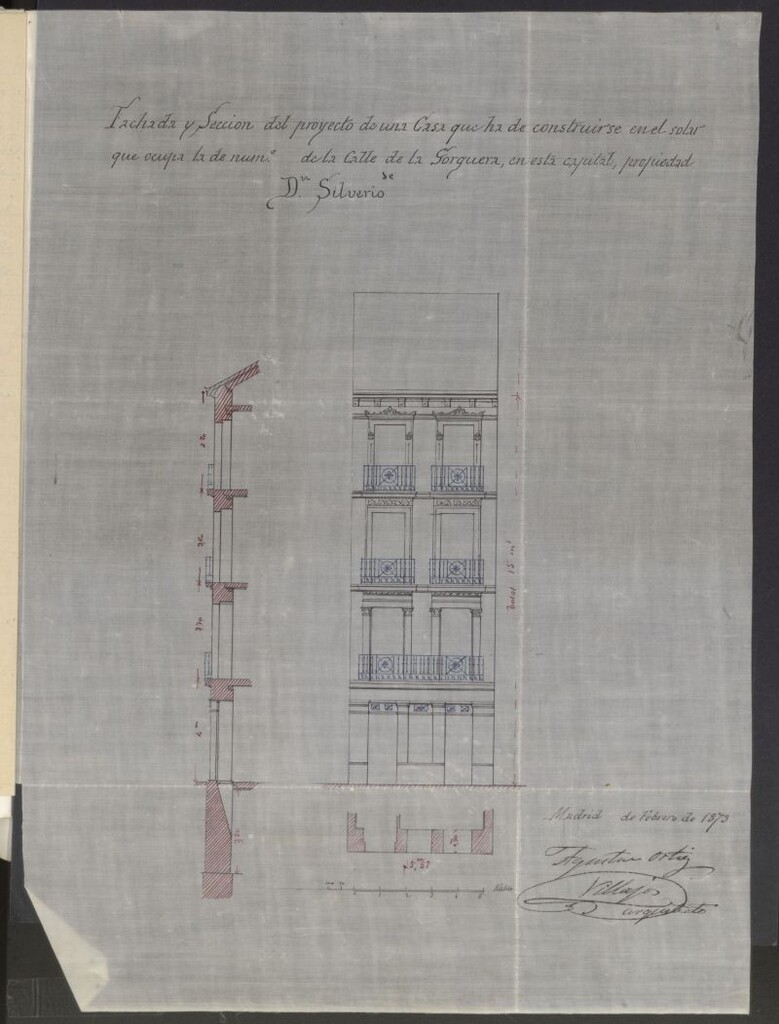 Fachada y Seccion del proyecto de una Casa que ha de construirse en el solar
que ocupa la de num.º de la Calle de la Gorguera, en esta capital, propiedad
de
D.ⁿ Silverio
Total 15 mˢ
4 m
Madrid de Febrero de 1873
Agustin Ortiz
Villajos
arquitecto